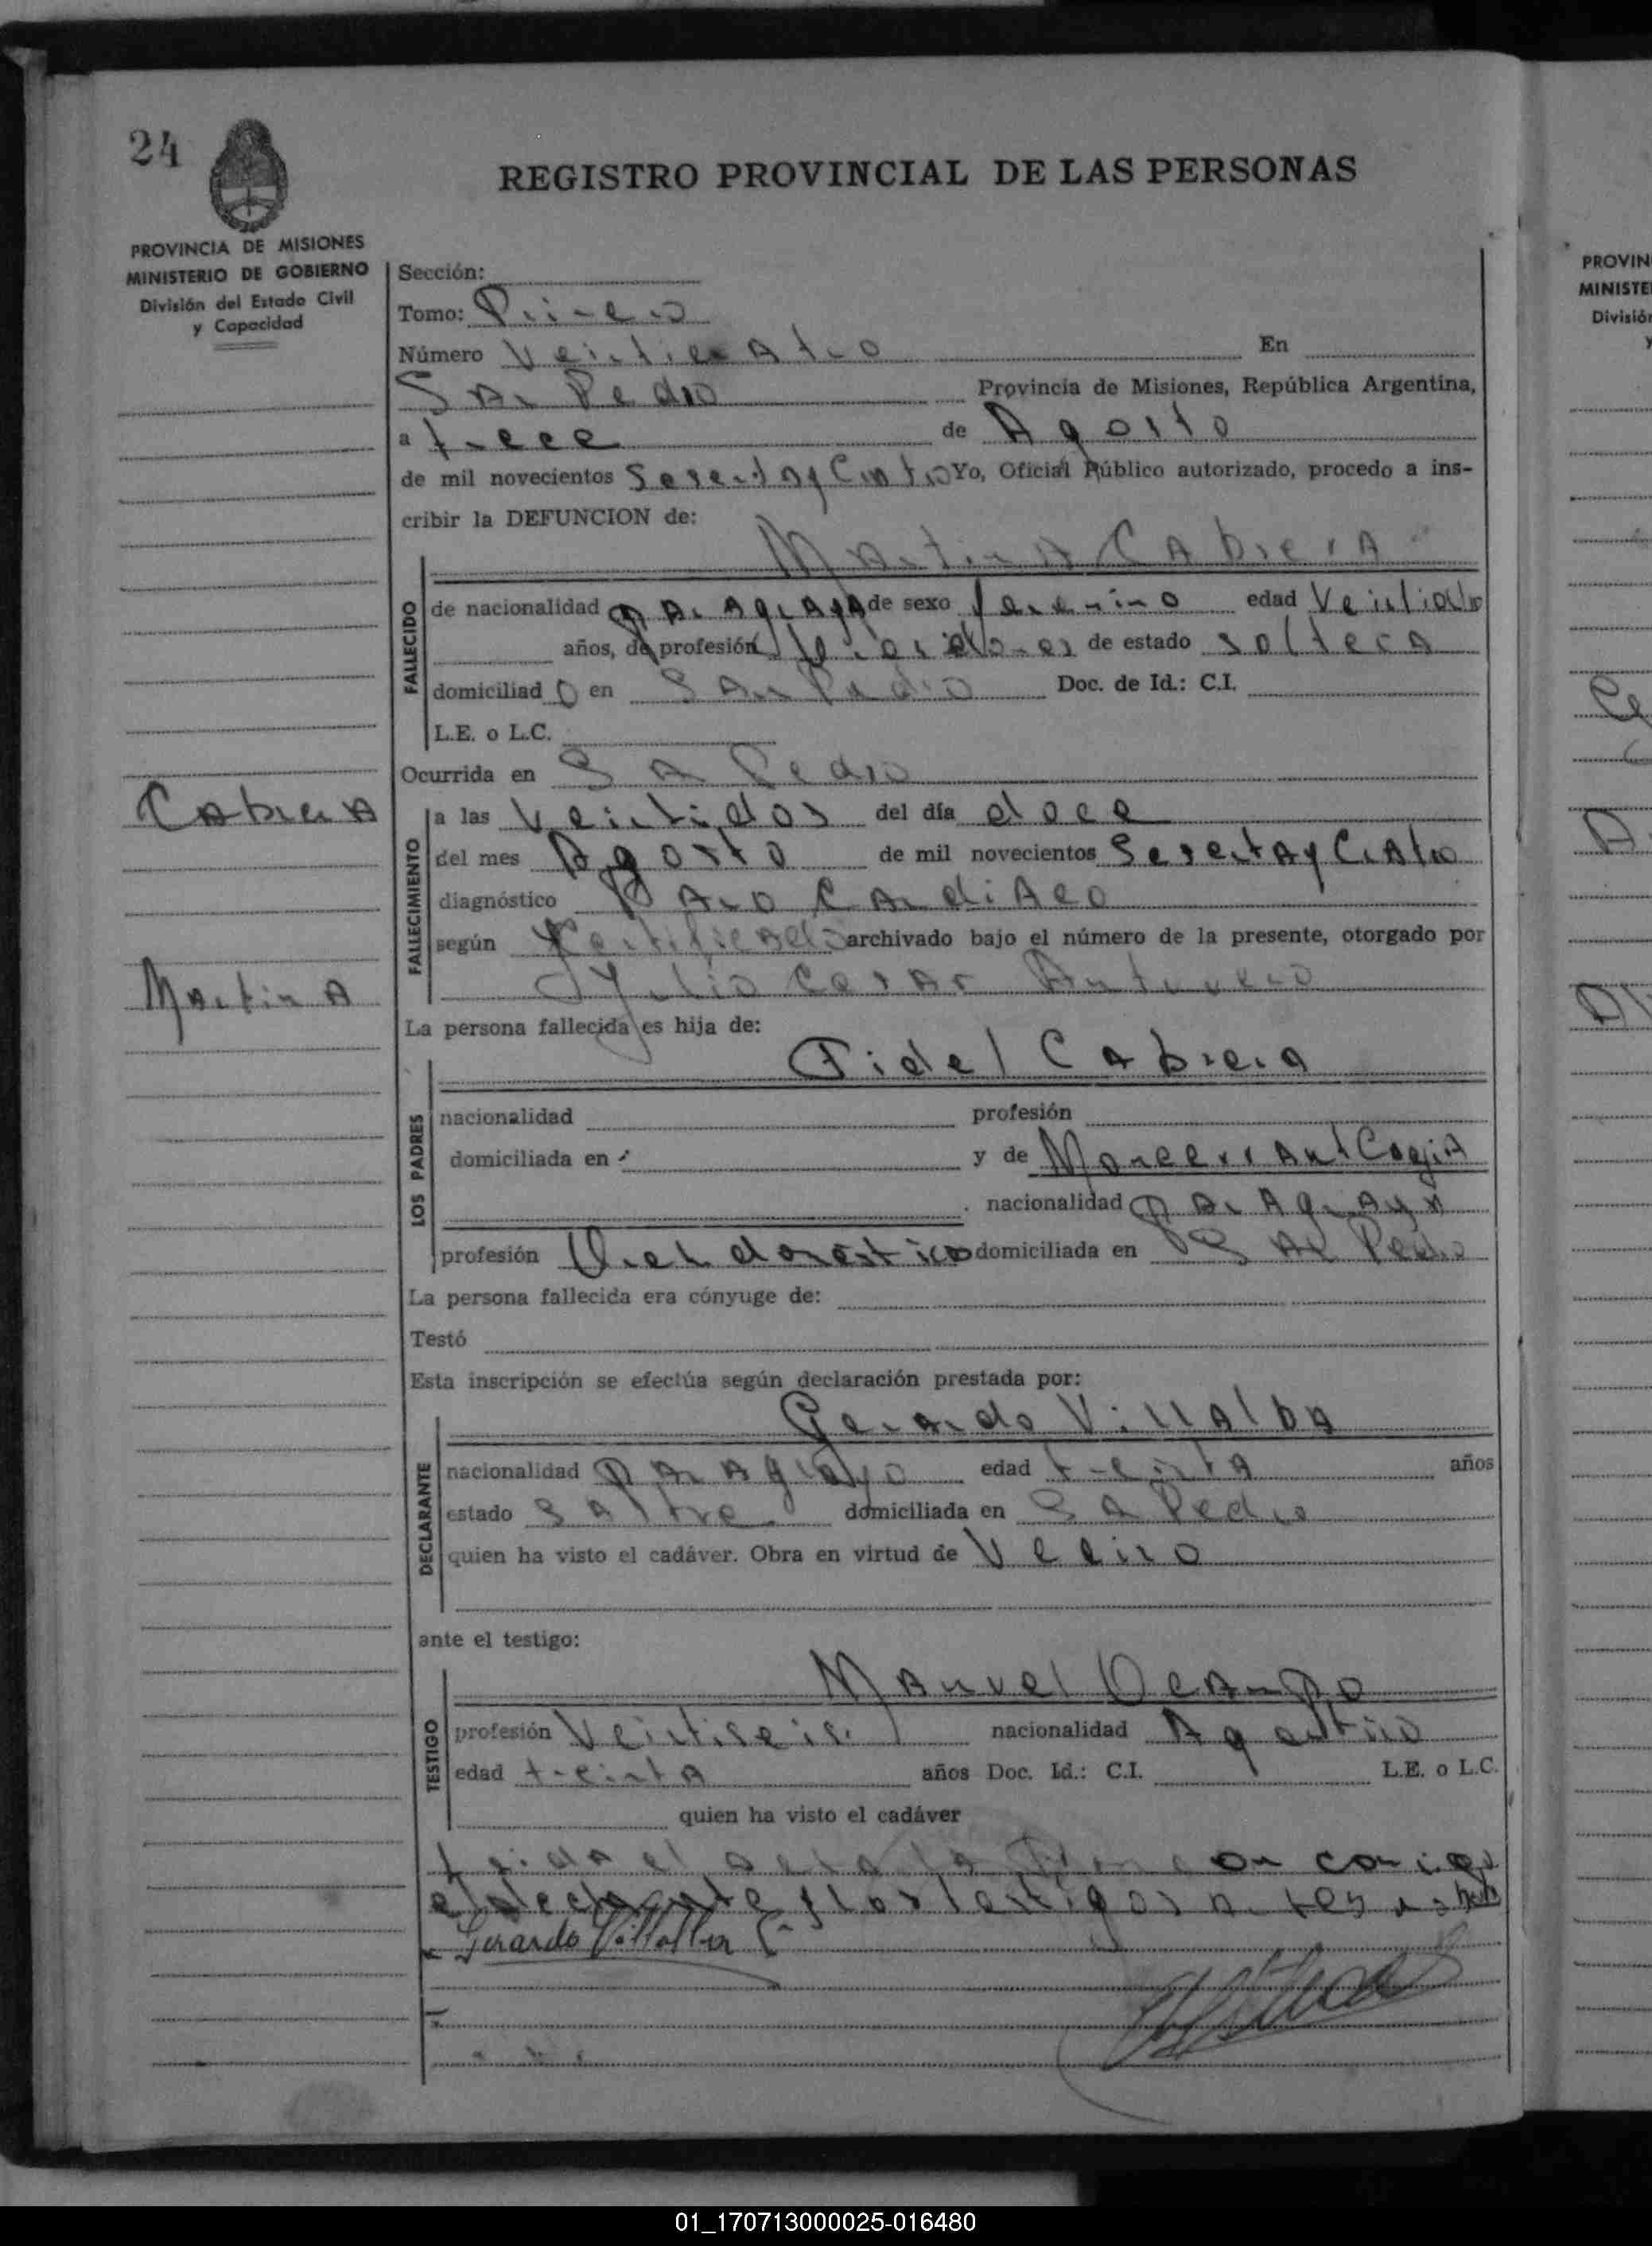 24
REGISTRO PROVINCIAL DE LAS PERSONAS
PROVINCIA DE MISIONES
MINISTERIO DE GOBIERNO
División del Estado Civil
y Capacidad
Sección:
Tomo: Primero
Número Veinticuatro En
San Pedro Provincia de Misiones, República Argentina,
a trece de Agosto
de mil novecientos Sesenta y Cuatro Yo, Oficial Público autorizado, procedo a ins-
cribir la DEFUNCION de:
Martina Cabrera
FALLECIDO
de nacionalidad paraguaya de sexo femenino edad
años, de profesión de estado soltera
domiciliad o en San Pedro Doc. de Id.: C.I.
L.E. o L.C.
Ocurrida en Sa Pedro
Cabrera
Martina
FALLECIMIENTO
a las veintidos del día doce
del mes Agosto de mil novecientos Sesenta y Cuatro
diagnóstico Paro Cardiaco
según Certificado archivado bajo el número de la presente, otorgado por
Julio Cesar
La persona fallecida es hija de:
Fidel Cabrera
LOS PADRES
nacionalidad profesión
domiciliada en y de
nacionalidad paraguaya
profesión domiciliada en San Pedro
La persona fallecida era cónyuge de:
Testó
Esta inscripción se efectúa según declaración prestada por:
Gerardo Villalba
DECLARANTE
nacionalidad paraguayo edad treinta años
estado domiciliada en Sa Pedro
quien ha visto el cadáver. Obra en virtud de Vecino
ante el testigo:
Manuel Ocampo
TESTIGO
profesión Veintiseis nacionalidad Agentino
edad treinta años Doc. Id.: C.I. L.E. o L.C.
quien ha visto el cadáver
leida el acta la
el declarante y los testigos
Gerardo Villalba
PROVIN
MINISTE
División
01_170713000025-016480